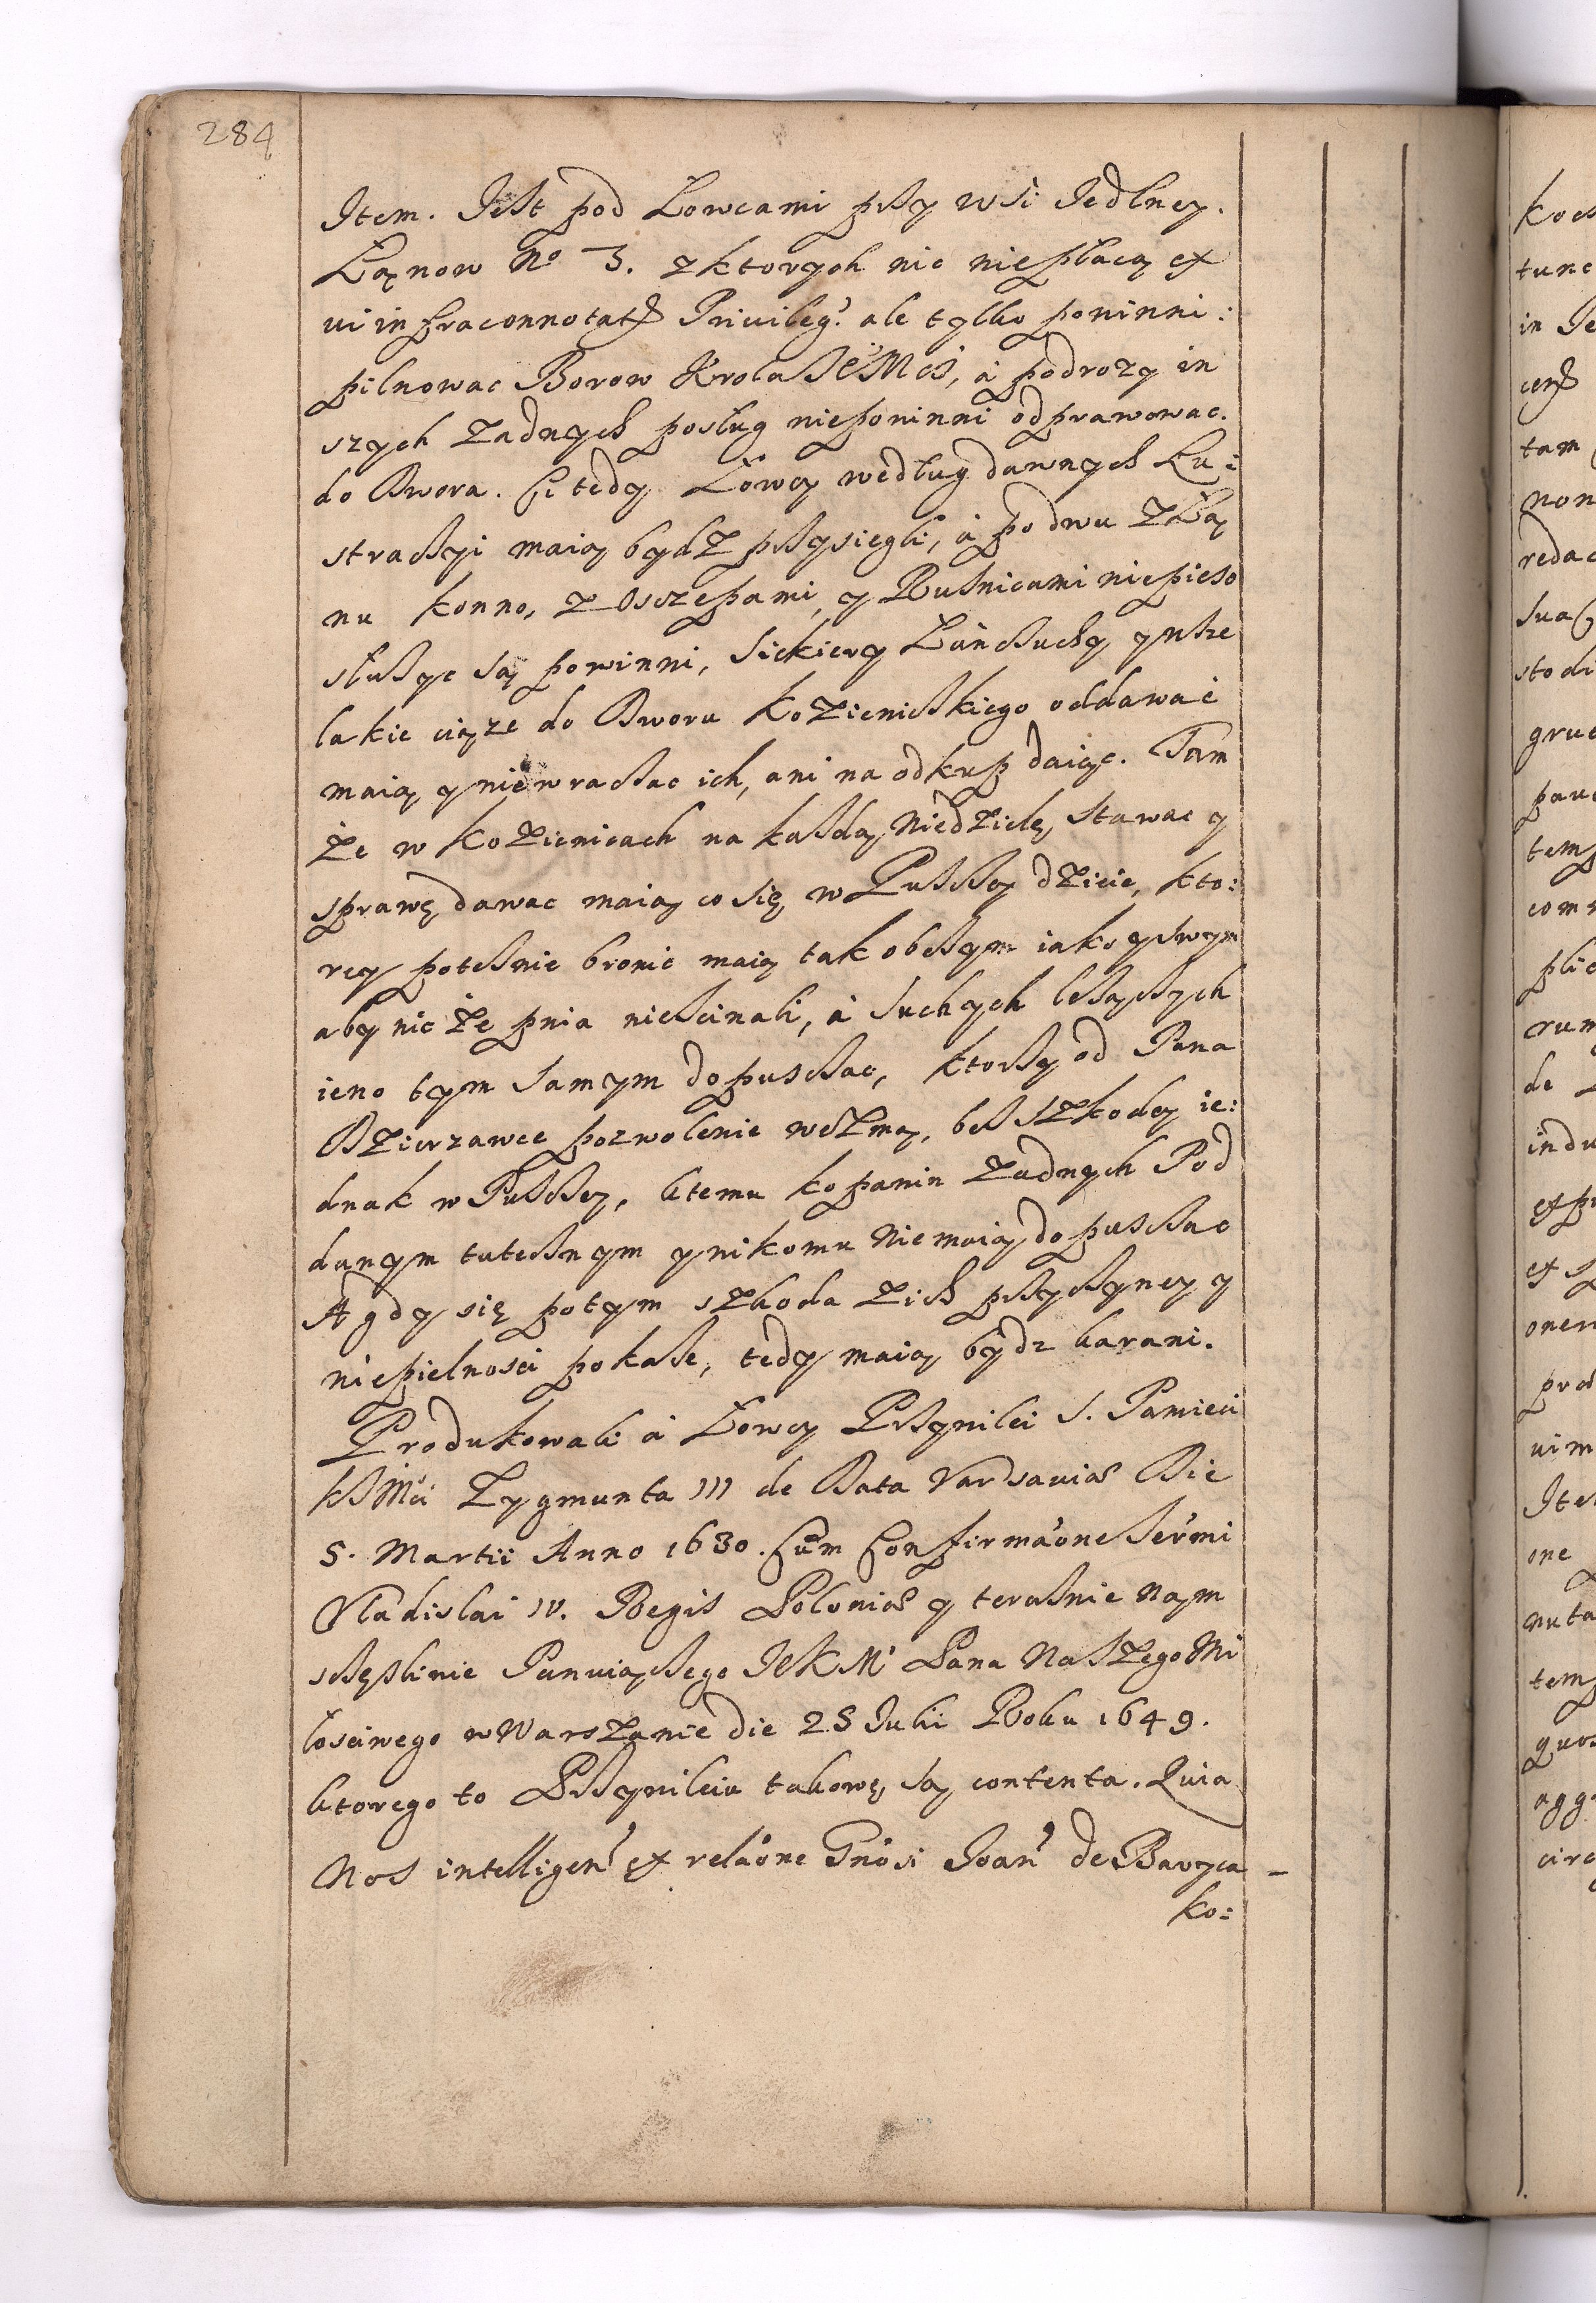 284
Item. Jest pod Łowcami przy wsi Jedlney.
Łanow No 3. z ktorych nic niepłacą ex
vi infraconnotatŧ Privileg: ale tylko powinni:
pilnowac Borow Krola JeºMci, á podrozy in
szych żadnych posług niepowinni odprawowac.
do Dwora. Ci tedy Łowcy według dawnych Lu:
stracyi maią bydź przysiegli, á po dwu z Ła
nu konno, z Osczepami, y Rusnicami niepieso
służyc są powinni, Siekiery Łańcuchy ynsze
lakie ciąze do Dworu Kozienickiego oddawać
maią y niewracac ich, ani na odkup daiąc. Tam
że w Kozienicach na każdą Niedzielę, stawac y
sprawę dawac maią co się w Pusczy dzieie, kto:
rey potežnie bronic maią tak obcym iako y swym
aby nic ze pnia niescinali, á suchych leżących
ieno tym samym dopusczac, ktorzy od Pana
Dzierzawce pozwolenie wezmą, bes szkody ie:
dnak w Pusczy, ktemu kopanin żadnych Pod
danym tutecznym y nikomu nie maią dopusczac
A gdy się potym szkoda z ich przyczyney y
niepielnosci pokaże, tedy maią bydz karani.
Produkowali á Łowcy Przywilei S. Pamieci
KJMci Zygmunta III de Data Varsaviae Die
5. Martii Anno 1630. Cum Confirmaône Sermi
Vladislai IV. Regis Poloniae y teraznie Nam
sczęsliwie Panuiącego JeKM Pana Naszego Mi
łosciwego w Warszawie die 25 Julii Roku 1649.
ktorego to Przywileiu takowę są contenta. Quia
Nos intelligen ex relaône Gnosi Joan de Baryca -
ko: